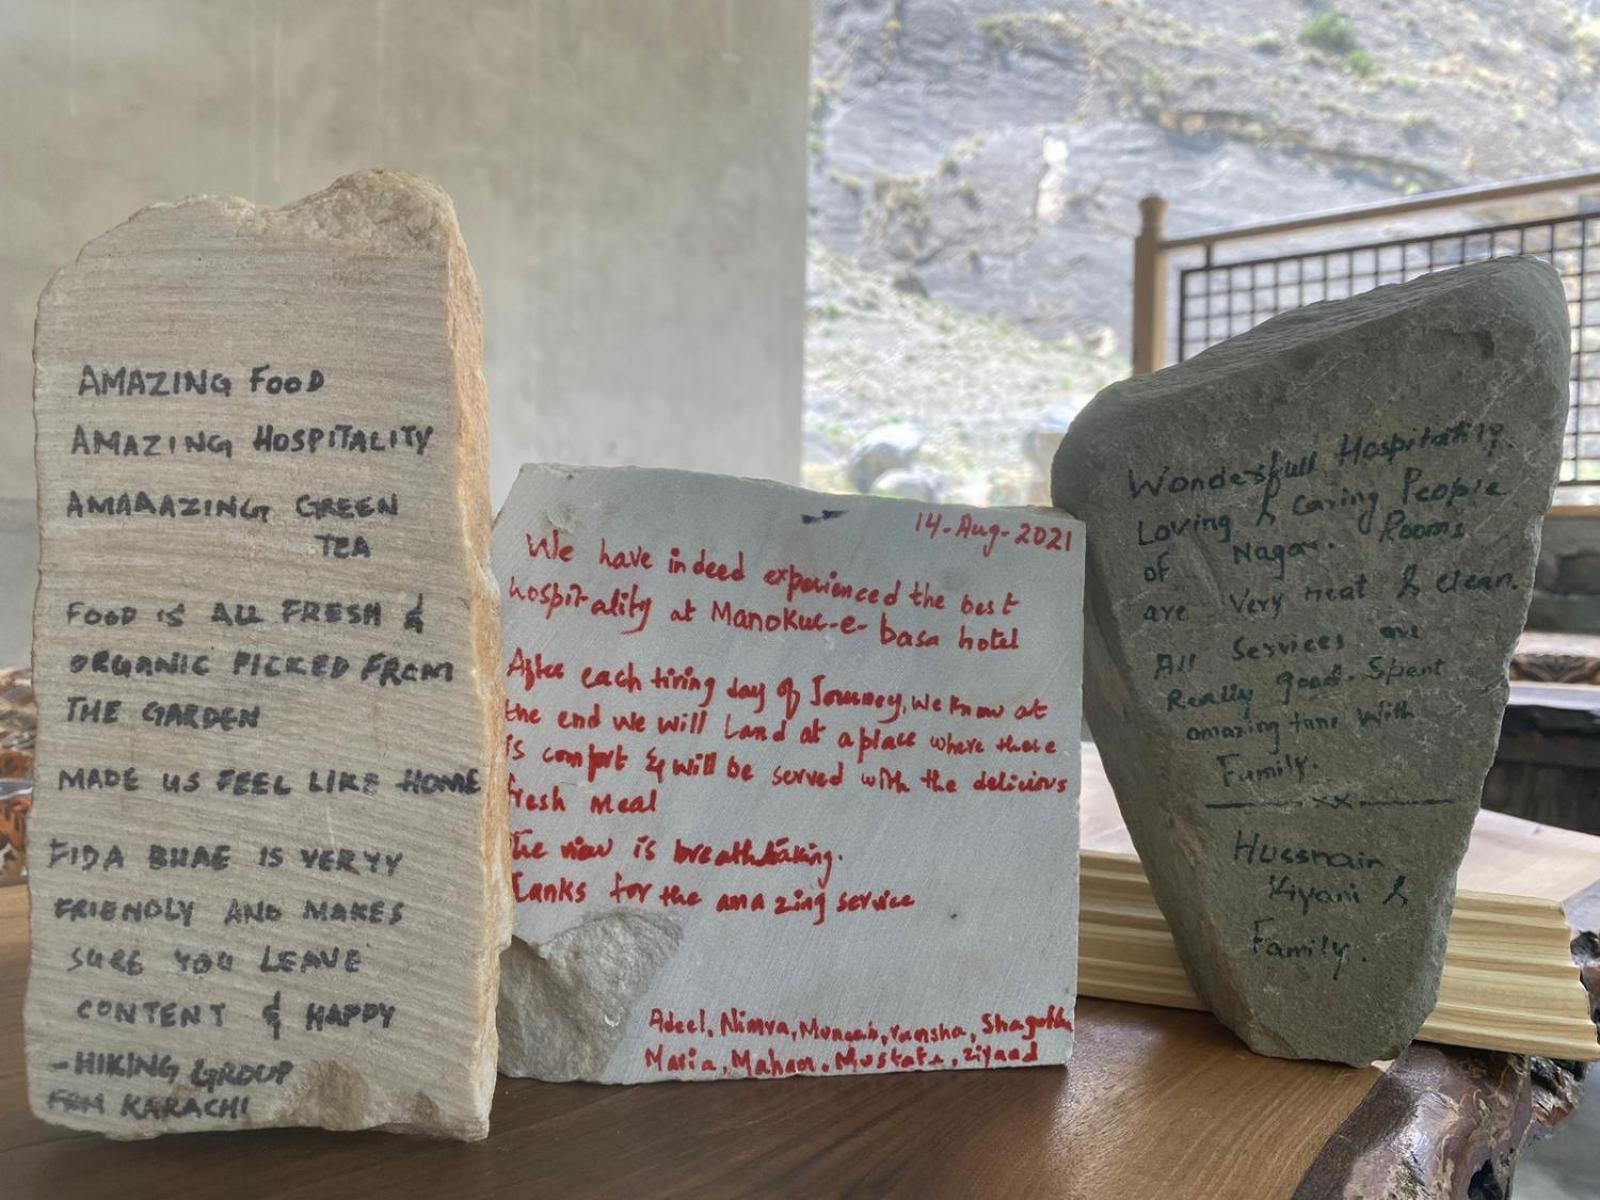 AMAZING FOOD
AMAZING HOSPITALITY
AMAAAZING GREEN
TEA
FOOD IS ALL FRESH &
ORGANIC PICKED FROM
THE GARDEN
MADE US FEEL LIKE HOME
FIDA BHAE IS VERYY
FRIENDLY AND MAKES
SURE YOU LEAVE
CONTENT & HAPPY
-HIKING GROUP
FROM KARACHI
14-Aug-2021
We have indeed experienced the best
hospitality at Manokur-e-basa hotel
After each tiring day of Journey, we know at
the end we will Land at a place where there
is comfort & will be served with the delicious
fresh meal
The view is breathtaking.
Tanks for the amazing service
Adeel, Nimra, Muneeb, Ramsha, Shagufta
Maria, Maham, Mustafa, Ziyaad
Wonderfull Hospitality.
Loving & Caring People
of Nagar. Rooms
are Very neat & clean.
All Services are
Really good. Spent
amazing time with
Family.
xx
Hussnain
Kiyani &
Family.